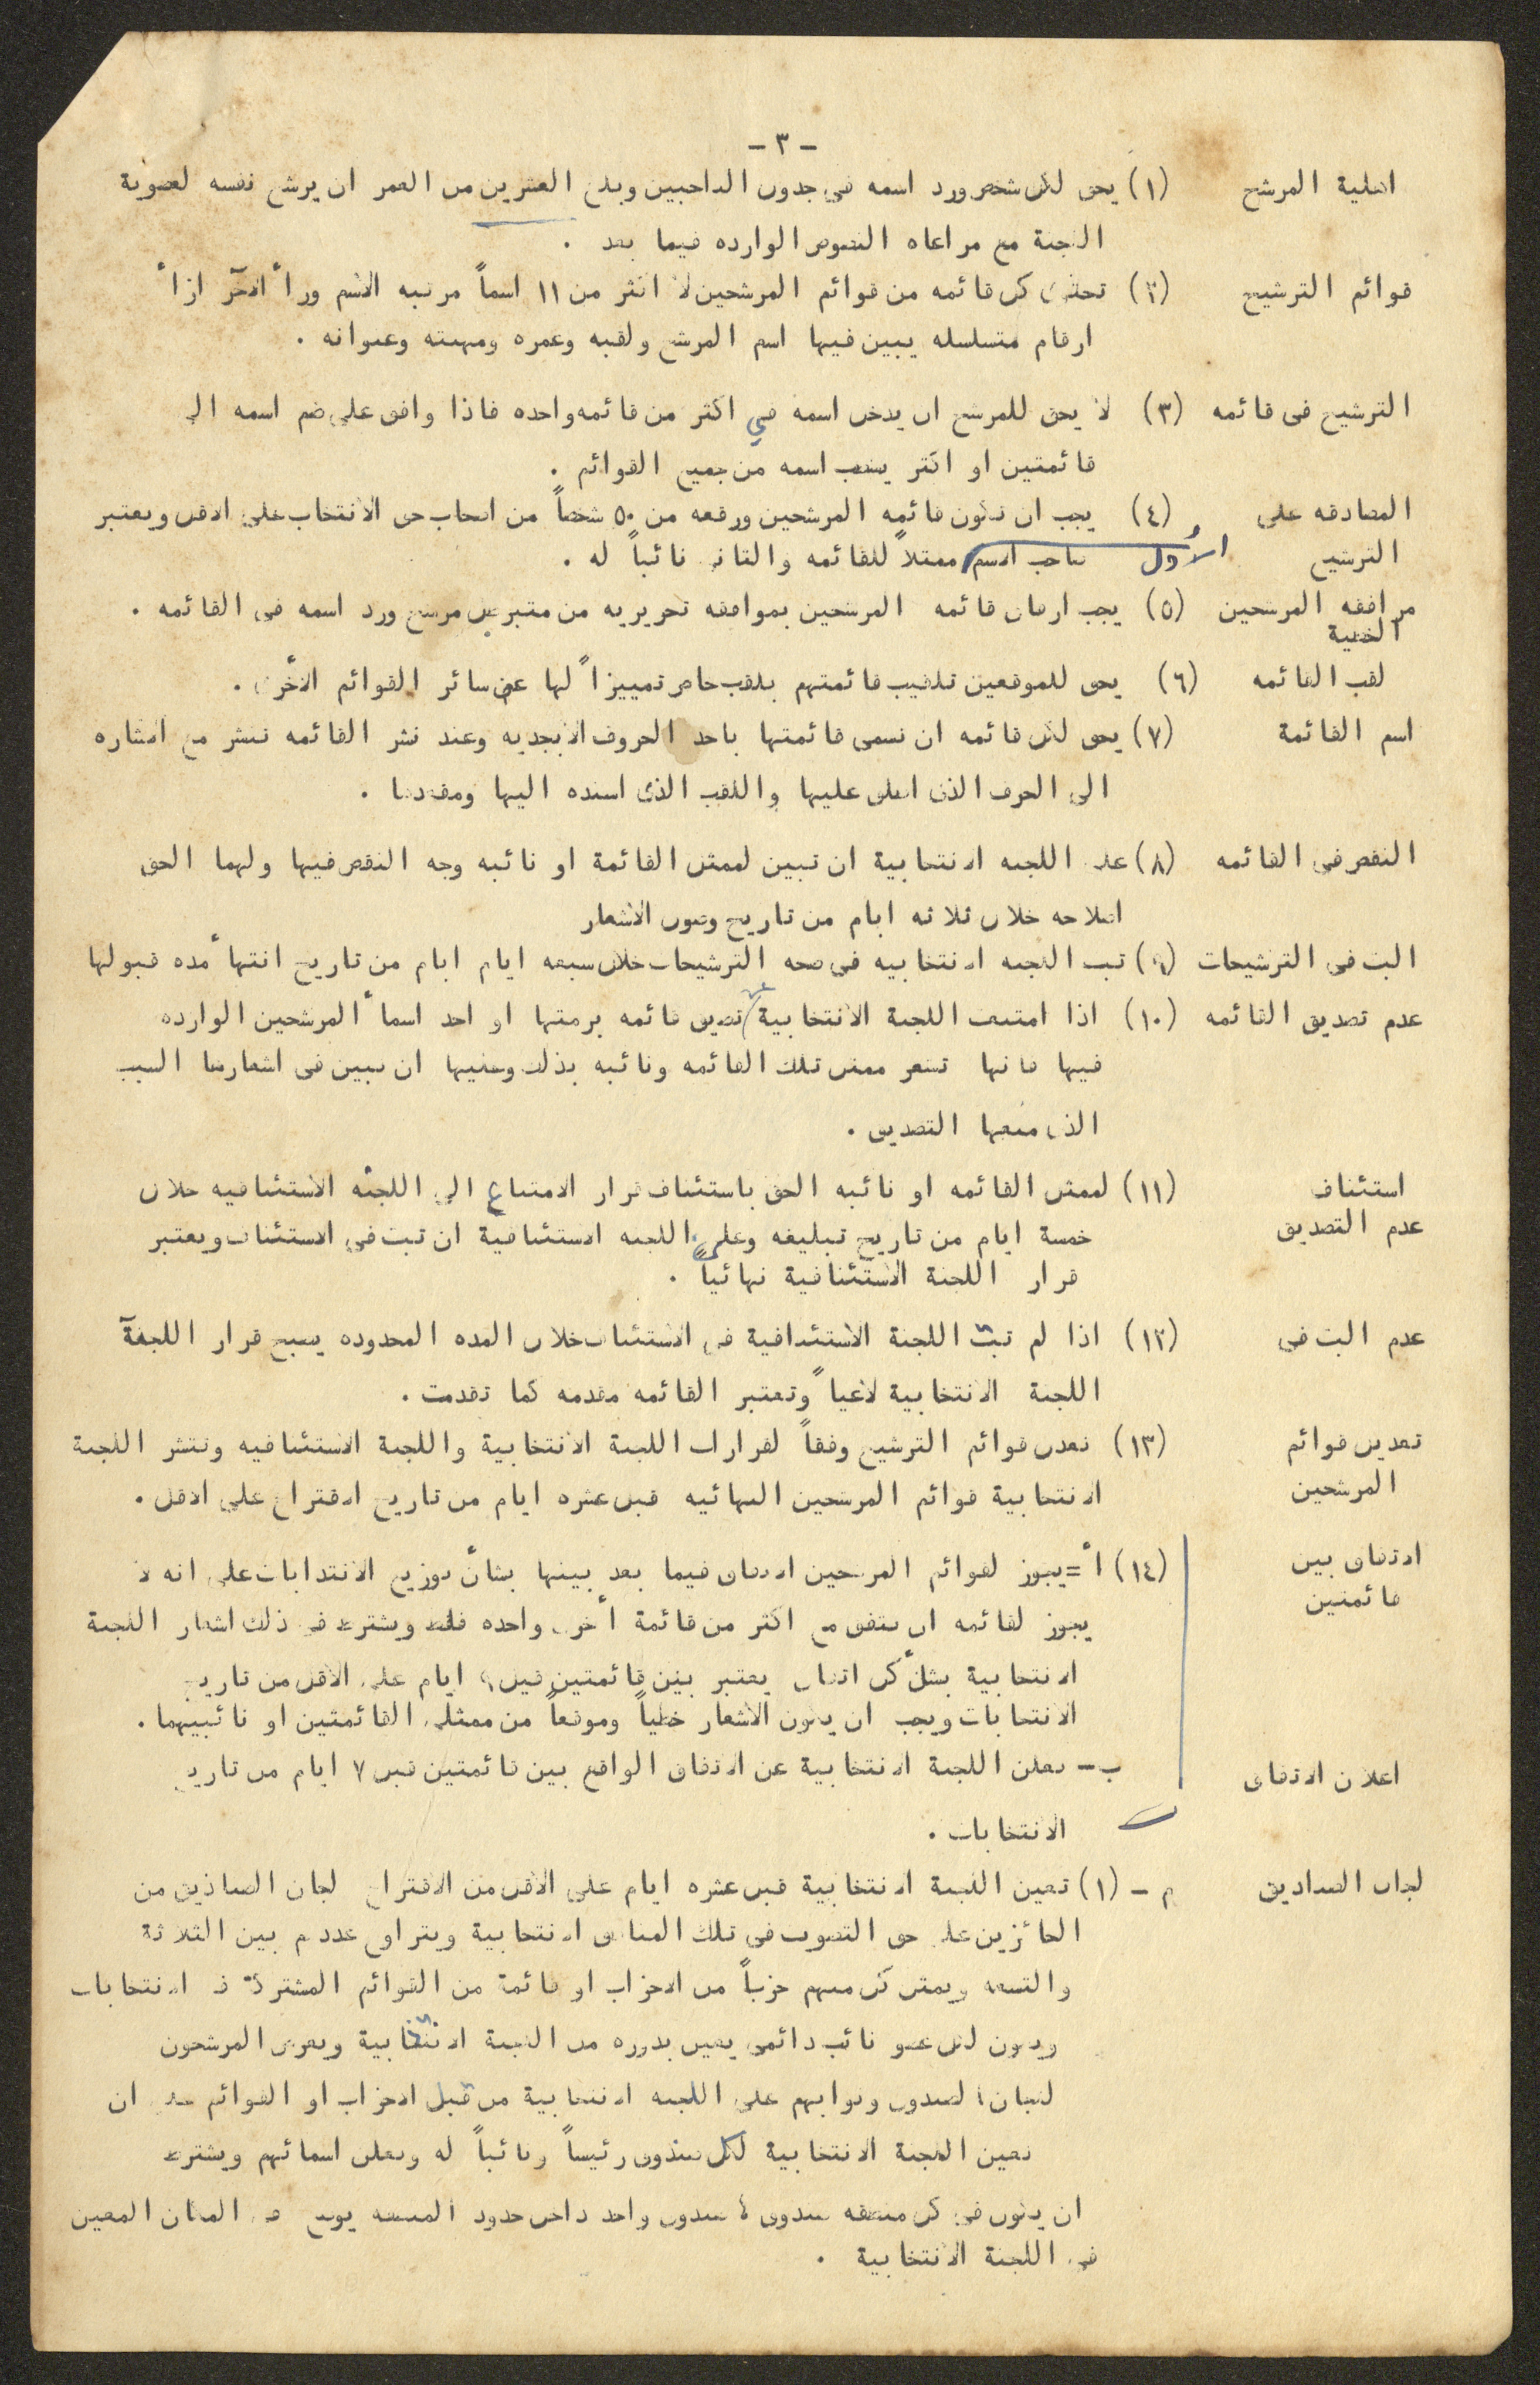 - ٣ -
اهلية المرشح (١) يحق لكل شخص ورد اسمه في جدول الناخبين وبلغ العشرين من العمر ان يرشح نفسه لعضوية
اللجنة مع مراعاه النصوص الوارده فيما بعد .
قوائم الترشيح (٢) تحتوى كل قائمه من قوائم المرشحين لا اكثر من ١١ اسماً مرتبه الاسم وراء الآخر ازاء
ارقام متسلسله يبين فيها اسم المرشح ولقبه وعمره ومهنته وعنوانه .
الترشيح فى قائمه (٣) لا يحق للمرشح ان يدخل اسمه في اكثر من قائمه واحده فاذا وافق على ضم اسمه الى
قائمتين او اكثر يشطب اسمه من جميع القوائم .
المصادقه على (٤) يجب ان تكون قائمه المرشحين ورقعه من ٥٠ شخصاً من اصحاب حق الانتخاب على الاقل ويعتبر
الترشيح صاحب الاسم الأول ممثلاً للقائمه والثانى نائباً له .
مرافقه المرشحين (٥) يجب ارفاق قائمه المرشحين بموافقه تحريريه من كل مرشح ورد اسمه فى القائمه .
الخطية
لقب القائمه (٦) يحق للموقعين تلقيب قائمتهم بلقب خاص تمييزاً لها عن سائر القوائم الأخرى .
اسم القائمة (٧) يحق لكل قائمه ان تسمى قائمتها باحد الحروف الابجديه وعند نشر القائمه تنشر مع اشاره
الى الحرف الذى اطلق عليها واللقب الذى اسنده اليها ومقدمها .
النقص فى القائمه (٨) على اللجنه الانتخابية ان تبين لممثل القائمة او نائبه وجه النقص فيها ولهما الحق
اصلاحه خلال ثلاثه ايام من تاريخ وصول الاشعار
البت فى الترشيحات (٩) تبت اللجنه الانتخابيه فى صحه الترشيحات خلال سبعه ايام ايام من تاريخ انتهاء مده قبولها
عدم تصديق القائمه (١٠) اذا امتنعت اللجنة الانتخابية عن تصديق قائمه برمتها او احد اسماء المرشحين الوارده
فيها فانها تشعر ممثل تلك القائمه ونائبه بذلك وعليها ان تبين فى اشعارها السبب
الذى منعها التصديق .
استئناف (١١) لممثل القائمه او نائبه الحق باستئناف قرار الامتناع الى اللجنه الاستئنافيه خلال
عدم التصديق خمسة ايام من تاريخ تبليغه وعلى اللجنه الاستئنافية ان تبت فى الاستئناف ويعتبر
قرار اللجنة الاستئنافية نهائياً .
عدم البت فى (١٢) اذا لم تبت اللجنة الاستئنافية فى الاستئناف خلال المده المحدوده يصبح قرار اللجنة
اللجنة الانتخابية لاغياً وتعتبر القائمه مقدمه كما تقدمت .
تعديل قوائم (١٣) تعدل قوائم الترشيح وفقاً لقرارات اللجنة الانتخابية واللجنة الاستئنافيه وتنشر اللجنة
المرشحين الانتخابية قوائم المرشحين النهائيه قبل عشره ايام من تاريخ الاقتراع على الاقل .
الاتفاق بين (١٤) أ = يجوز لقوائم المرشحين الاتفاق فيما بعد بينها بشأن توزيع الانتدابات على انه لا
قائمتين يجوز لقائمه ان تتفق مع اكثر من قائمة أخرى واحده فقط ويشترط فى ذلك اشعار اللجنة
الانتخابية بشأن كل اتفاق يعتبر بين قائمتين قبل ٩ ايام على الاقل من تاريخ
الانتخابات ويجب ان يكون الاشعار خطياً وموقعاً من ممثلى القائمتين او نائبيهما .
اعلان الاتفاق ب - تعلن اللجنة الانتخابية عن الاتفاق الواقع بين قائمتين قبل ٧ ايام من تاريخ
الانتخابات .
لجان الصناديق م - (١) تعين اللجنة الانتخابية قبل عشره ايام على الاقل من الاقتراع لجان الصناديق من
الحائزين على حق التصويت فى تلك المناطق الانتخابية ويتراوح عددهم بين الثلاثة
والتسعه ويمثل كل منهم حزباً من الاحزاب او قائمة من القوائم المشتركة فى الانتخابات
ويكون لكل عضو نائب دائمى يعين بدوره من اللجنة الانتخابية ويعرض المرشحون
للجان الصندوق ونوابهم على اللجنه الانتخابية من قبل الاحزاب او القوائم على ان
تعين اللجنة الانتخابية لكل صندوق رئيساً ونائباً له وتعلن اسمائهم ويشترط
ان يكون فى كل منطقه صندوق صندوق واحد داخل حدود المنطقه يوضع فى المكان المعين
فى اللجنة الانتخابية .